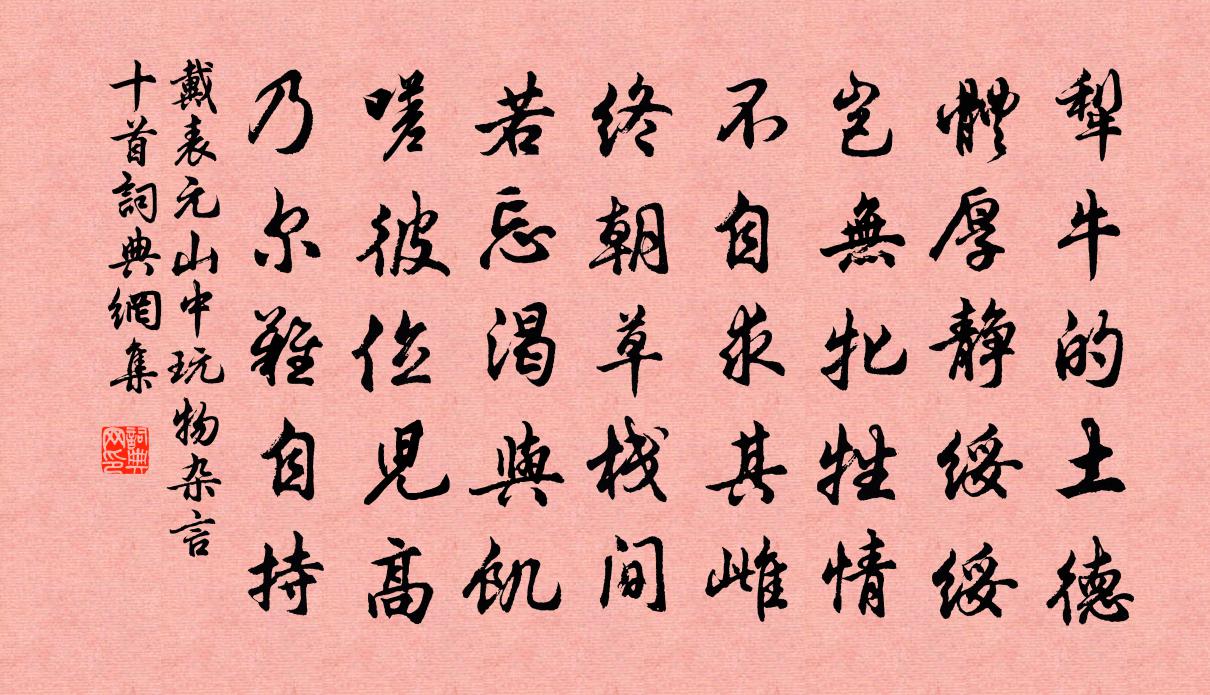 犁牛的土德
體厚静綏綏
豈無牝牲情
不自求其雌
終朝草棧間
若忘渴與飢
嗟彼位児高
乃尔難自持
戴表元山中玩物杂言
十首詞典網集
詞典
网印